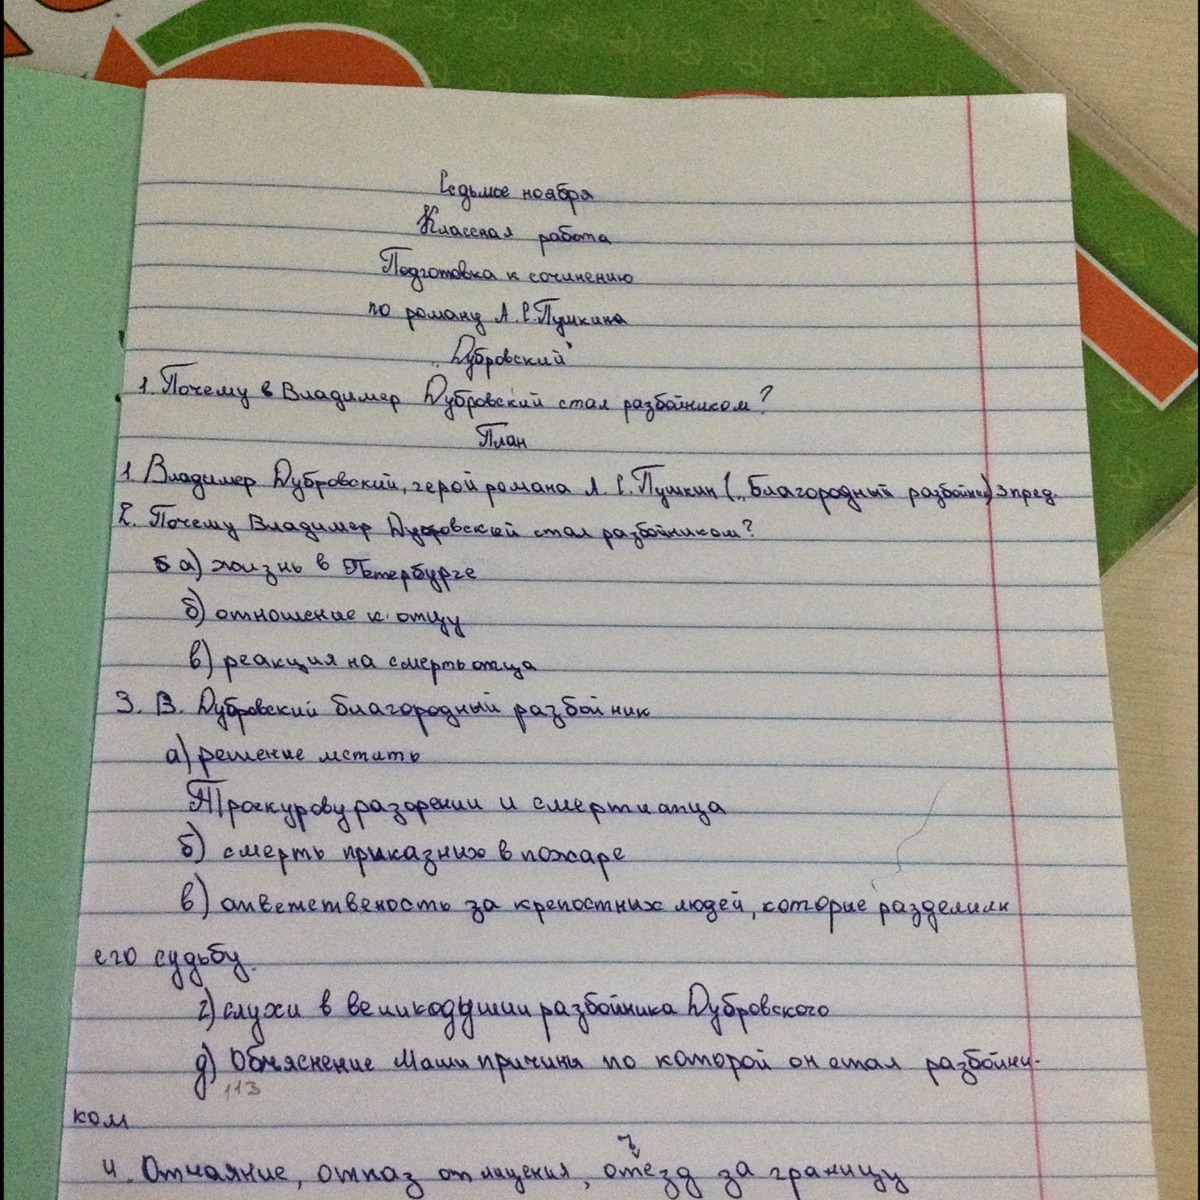 Седьмое ноября
Классная работа
Подготовка к сочинению
по роману А.С.Пушкина
„Дубровский"
1. Почему в Владимер Дубровский стал разбойником?
План
1. Владимер Дубровский, герой романа А.С.Пушкин („Благородный разбойник) 3 пред.
2. Почему Владимер Дубровский стал разбойником?
а) жизнь в Петербурге
б) отношение к отцу
в) реакция на смерть отца
3. В. Дубровский благородный разбойник
а) решение мстить
Троекурову разорении и смерти отца
б) смерть приказних в пожаре
в) ответственость за крепостних людей, которие разделили
его судьбу.
г) слухи в великодушии разбойника Дубровского
д) Обьяснение Маши причини по которой он стал разбойни-
113
ком
ъ
4. Отчаяние, отказ от мщения, отезд за границу